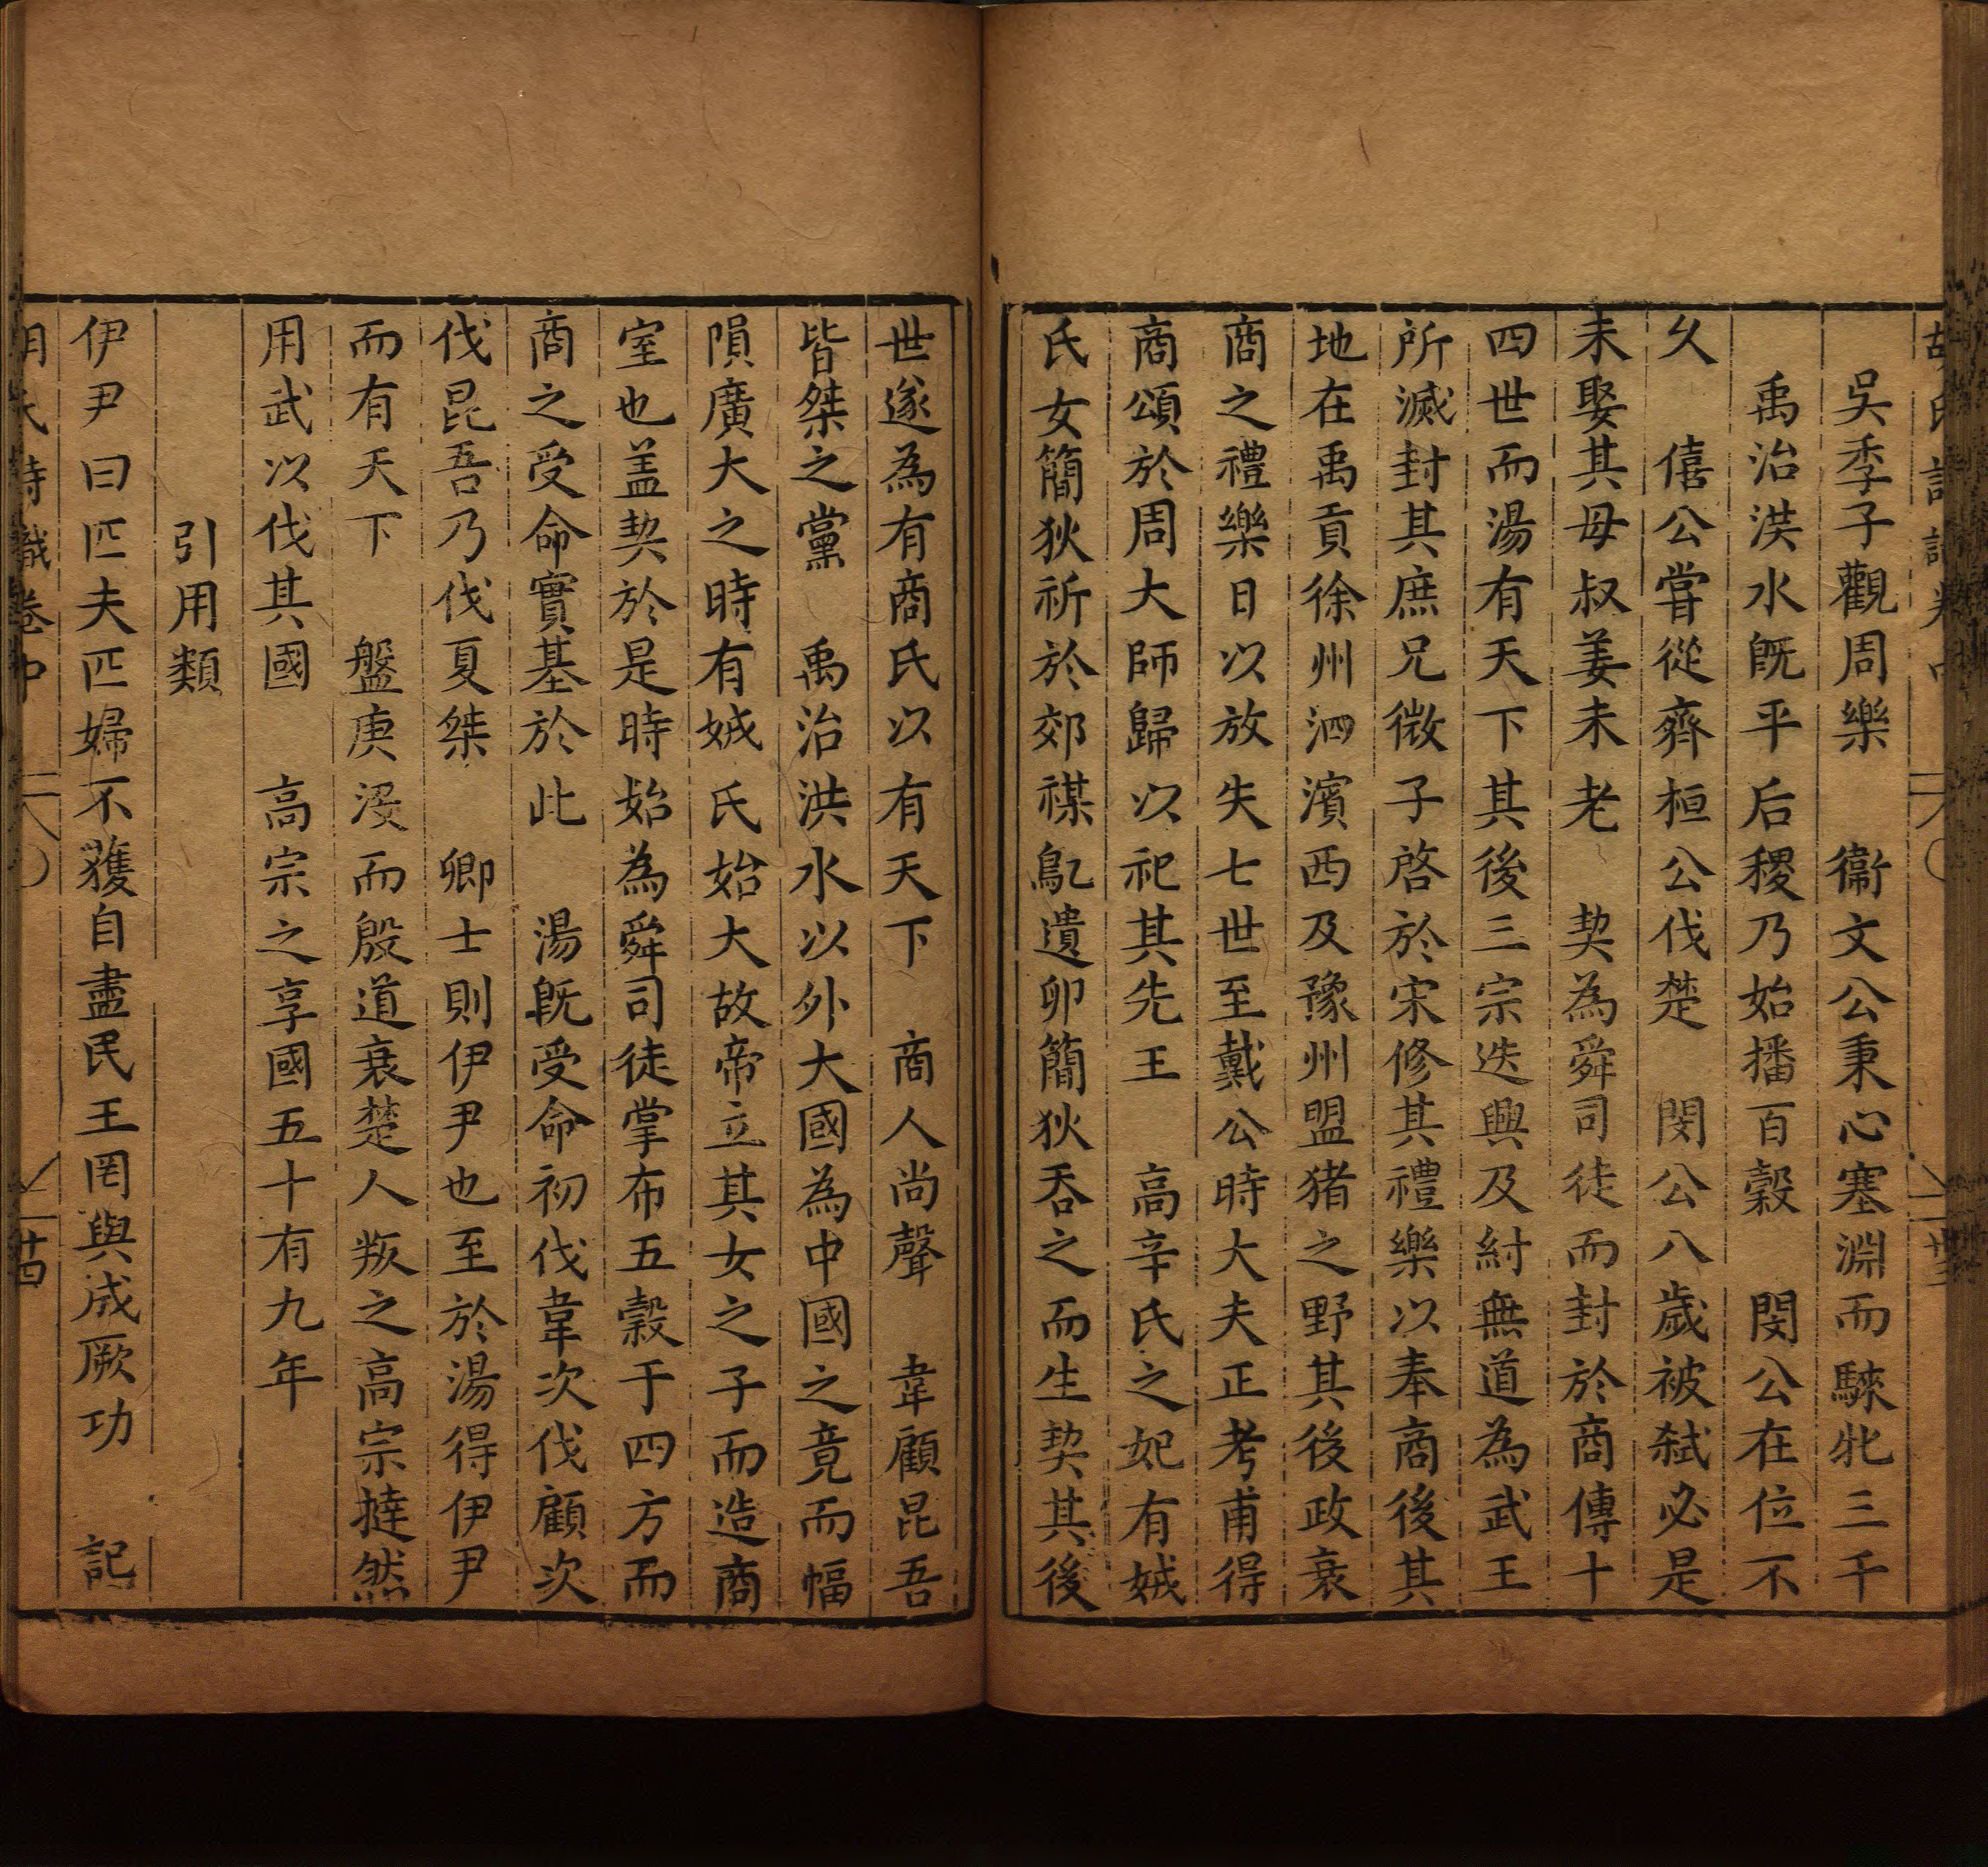 吳季子觀周樂　衞文公秉心塞淵而騋牝三千
禹治洪水旣平后稷乃始播百穀　閔公在位不
久　僖公嘗從齊桓公伐楚　閔公八歲被弑必是
未娶其母叔姜未老　契為舜司徒而封於商傳十
四世而湯有天下其後三宗迭興及紂無道為武王
所滅封其庶兄微子啓於宋修其禮樂以奉商後其
地在禹貢徐州泗濱西及豫州盟猪之野其後政衰
商之禮樂日以放失七世至戴公時大夫正考甫得
商頌於周大師歸以祀其先王　高辛氏之妃有娀
氏女簡狄祈於郊禖鳦遺卵簡狄吞之而生契其後
世遂為有商氏以有天下　商人尚聲　韋顧昆吾
皆桀之黨　禹治洪水以外大國為中國之竟而幅
隕廣大之時有娀氏始大故帝立其女之子而造商
室也盖契於是時始為舜司徒掌布五穀于四方而
商之受命實基於此　湯旣受命初伐韋次伐顧次
伐昆吾乃伐夏桀　卿士則伊尹也至於湯得伊尹
而有天下　盤庚沒而殷道衰楚人叛之高宗撻然
用武以伐其國　高宗之享國五十有九年
引用類
伊尹曰匹夫匹婦不獲自盡民王罔與成厥功　記
卷中
十四